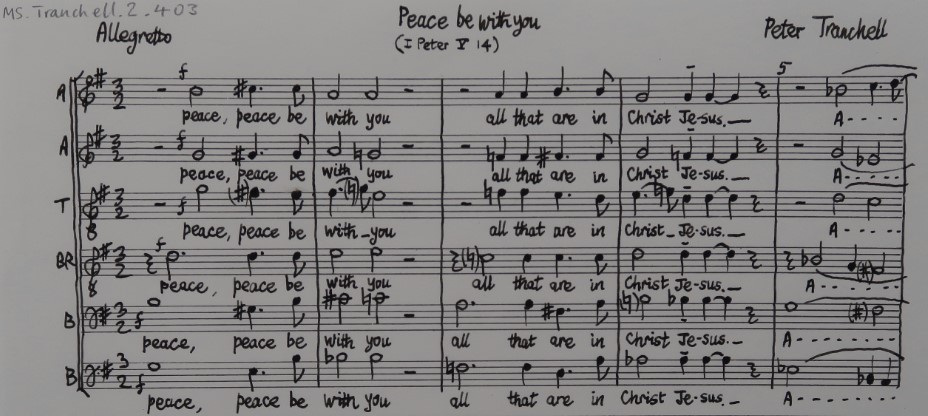 MS. Tranchell. 2. 403
Peace be with you
(I Peter V 14)
Allegretto
Peter Tranchell
5
A f
peace, peace be with you all that are in Christ Je-sus. A----
A f
peace, peace be with you all that are in Christ Je-sus. A----
T f
peace, peace be with-you all that are in Christ- Je-sus. A----
BR f
peace, peace be with you all that are in Christ Je-sus. A----
B f
peace, peace be with you all that are in Christ Je-sus. A----
B f
peace, peace be with you all that are in Christ Je-sus. A----